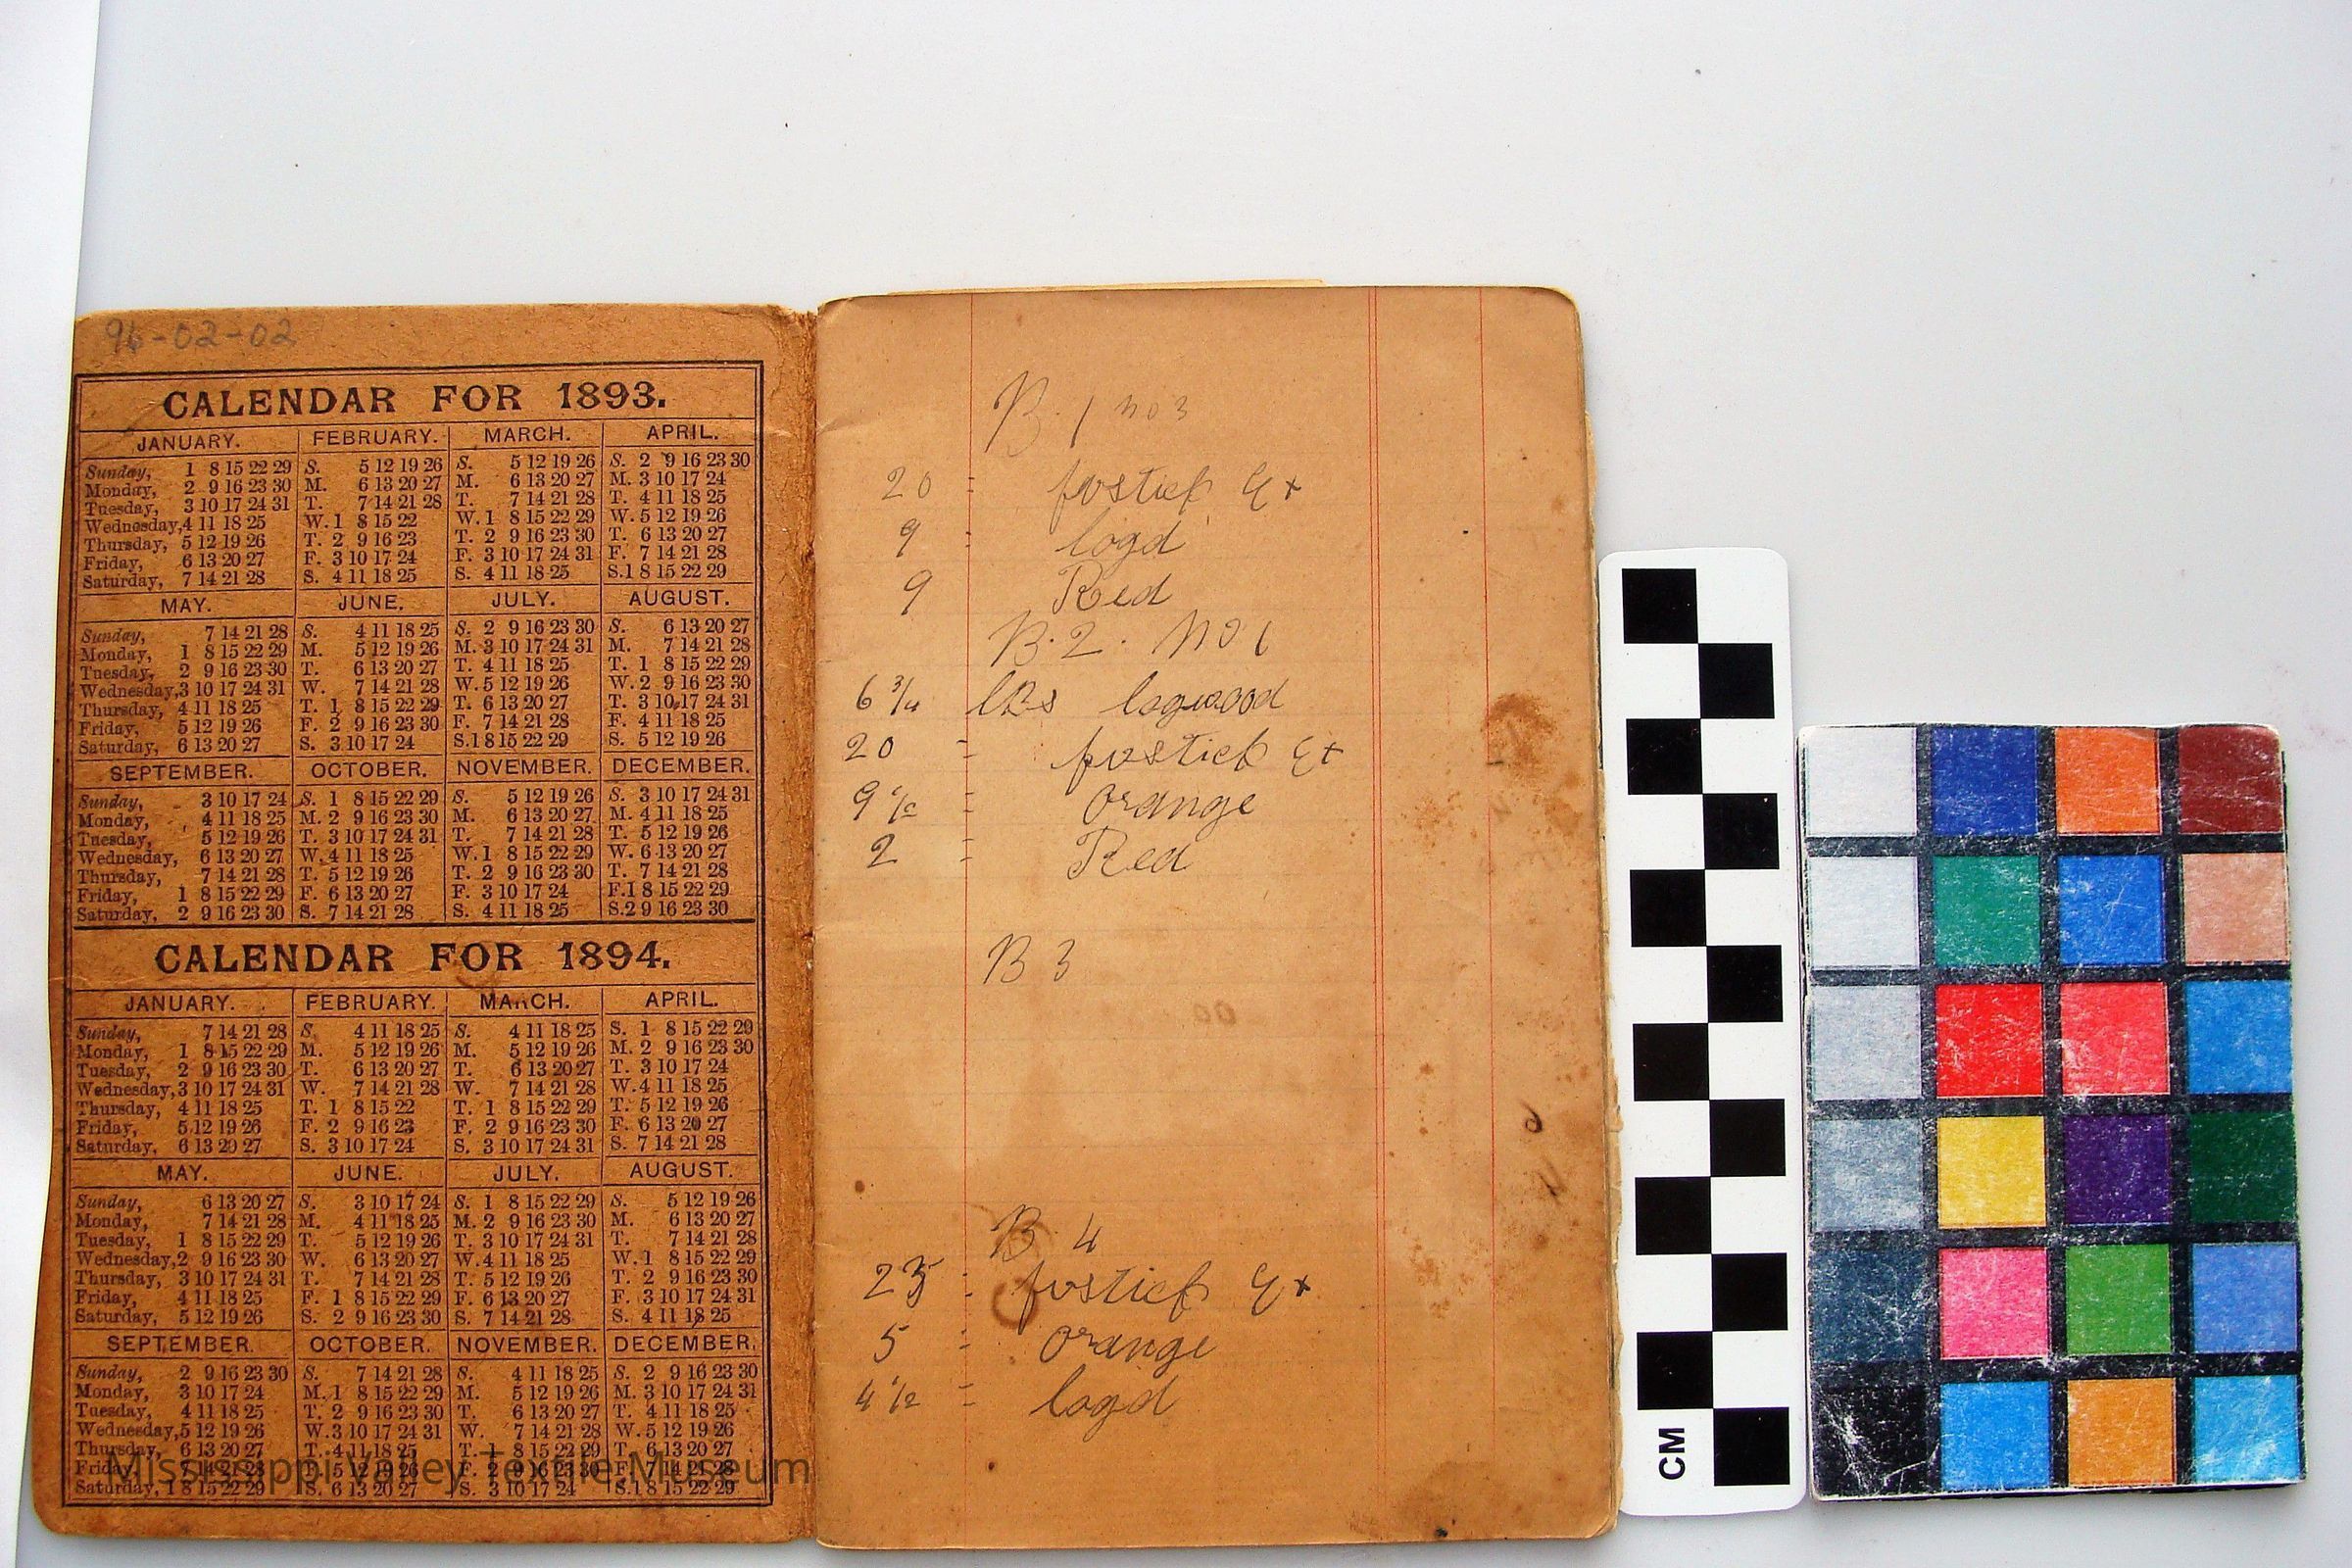 96-02-02
CALENDAR FOR 1893.
JANUARY. FEBRUARY. MARCH. APRIL.
Sunday, 1 8 15 22 29 S. 5 12 19 26 S. 5 12 19 26 S. 2 9 16 23 30
Monday, 2 9 16 23 30 M. 6 13 20 27 M. 6 13 20 27 M. 3 10 17 24
Tuesday, 3 10 17 24 31 T. 7 14 21 28 T. 7 14 21 28 T. 4 11 18 25
Wednesday, 4 11 18 25 W. 1 8 15 22 W. 1 8 15 22 29 W. 5 12 19 26
Thursday, 5 12 19 26 T. 2 9 16 23 T. 2 9 16 23 30 T. 6 13 20 27
Friday, 6 13 20 27 F. 3 10 17 24 F. 3 10 17 24 31 F. 7 14 21 28
Saturday, 7 14 21 28 S. 4 11 18 25 S. 4 11 18 25 S. 1 8 15 22 29
MAY. JUNE. JULY. AUGUST.
Sunday, 7 14 21 28 S. 4 11 18 25 S. 2 9 16 23 30 S. 6 13 20 27
Monday, 1 8 15 22 29 M. 5 12 19 26 M. 3 10 17 24 31 M. 7 14 21 28
Tuesday, 2 9 16 23 30 T. 6 13 20 27 T. 4 11 18 25 T. 1 8 15 22 29
Wednesday, 3 10 17 24 31 W. 7 14 21 28 W. 5 12 19 26 W. 2 9 16 23 30
Thursday, 4 11 18 25 T. 1 8 15 22 29 T. 6 13 20 27 T. 3 10 17 24 31
Friday, 5 12 19 26 F. 2 9 16 23 30 F. 7 14 21 28 F. 4 11 18 25
Saturday, 6 13 20 27 S. 3 10 17 24 S. 1 8 15 22 29 S. 5 12 19 26
SEPTEMBER. OCTOBER. NOVEMBER. DECEMBER.
Sunday, 3 10 17 24 S. 1 8 15 22 29 S. 5 12 19 26 S. 3 10 17 24 31
Monday, 4 11 18 25 M. 2 9 16 23 30 M. 6 13 20 27 M. 4 11 18 25
Tuesday, 5 12 19 26 T. 3 10 17 24 31 T. 7 14 21 28 T. 5 12 19 26
Wednesday, 6 13 20 27 W. 4 11 18 25 W. 1 8 15 22 29 W. 6 13 20 27
Thursday, 7 14 21 28 T. 5 12 19 26 T. 2 9 16 23 30 T. 7 14 21 28
Friday, 1 8 15 22 29 F. 6 13 20 27 F. 3 10 17 24 F. 1 8 15 22 29
Saturday, 2 9 16 23 30 S. 7 14 21 28 S. 4 11 18 25 S. 2 9 16 23 30
CALENDAR FOR 1894.
JANUARY. FEBRUARY. MARCH. APRIL.
Sunday, 7 14 21 28 S. 4 11 18 25 S. 4 11 18 25 S. 1 8 15 22 29
Monday, 1 8 15 22 29 M. 5 12 19 26 M. 5 12 19 26 M. 2 9 16 23 30
Tuesday, 2 9 16 23 30 T. 6 13 20 27 T. 6 13 20 27 T. 3 10 17 24
Wednesday, 3 10 17 24 31 W. 7 14 21 28 W. 7 14 21 28 W. 4 11 18 25
Thursday, 4 11 18 25 T. 1 8 15 22 T. 1 8 15 22 29 T. 5 12 19 26
Friday, 5 12 19 26 F. 2 9 16 23 F. 2 9 16 23 30 F. 6 13 20 27
Saturday, 6 13 20 27 S. 3 10 17 24 S. 3 10 17 24 31 S. 7 14 21 28
MAY. JUNE. JULY. AUGUST.
Sunday, 6 13 20 27 S. 3 10 17 24 S. 1 8 15 22 29 S. 5 12 19 26
Monday, 7 14 21 28 M. 4 11 18 25 M. 2 9 16 23 30 M. 6 13 20 27
Tuesday, 1 8 15 22 29 T. 5 12 19 26 T. 3 10 17 24 31 T. 7 14 21 28
Wednesday, 2 9 16 23 30 W. 6 13 20 27 W. 4 11 18 25 W. 1 8 15 22 29
Thursday, 3 10 17 24 31 T. 7 14 21 28 T. 5 12 19 26 T. 2 9 16 23 30
Friday, 4 11 18 25 F. 1 8 15 22 29 F. 6 13 20 27 F. 3 10 17 24 31
Saturday, 5 12 19 26 S. 2 9 16 23 30 S. 7 14 21 28 S. 4 11 18 25
SEPTEMBER. OCTOBER. NOVEMBER. DECEMBER.
Sunday, 2 9 16 23 30 S. 7 14 21 28 S. 4 11 18 25 S. 2 9 16 23 30
Monday, 3 10 17 24 M. 1 8 15 22 29 M. 5 12 19 26 M. 3 10 17 24 31
Tuesday, 4 11 18 25 T. 2 9 16 23 30 T. 6 13 20 27 T. 4 11 18 25
Wednesday, 5 12 19 26 W. 3 10 17 24 31 W. 7 14 21 28 W. 5 12 19 26
Thursday, 6 13 20 27 T. 4 11 18 25 T. 1 8 15 22 29 T. 6 13 20 27
Friday, 7 14 21 28 F. 5 12 19 26 F. 2 9 16 23 30 F. 7 14 21 28
Saturday, 1 8 15 22 29 S. 6 13 20 27 S. 3 10 17 24 S. 1 8 15 22 29
Mississippi Valley Textile Museum
B. 1 no 3
20 = fustick Ex
9 = logd
9 Red
B. 2. No 1
6 3/4 lbs logwood
20 = fustick Ex
9 1/2 = orange
2 = Red
B 3
B 4
25 = fustick Ex
5 = orange
4 1/2 = logd
CM